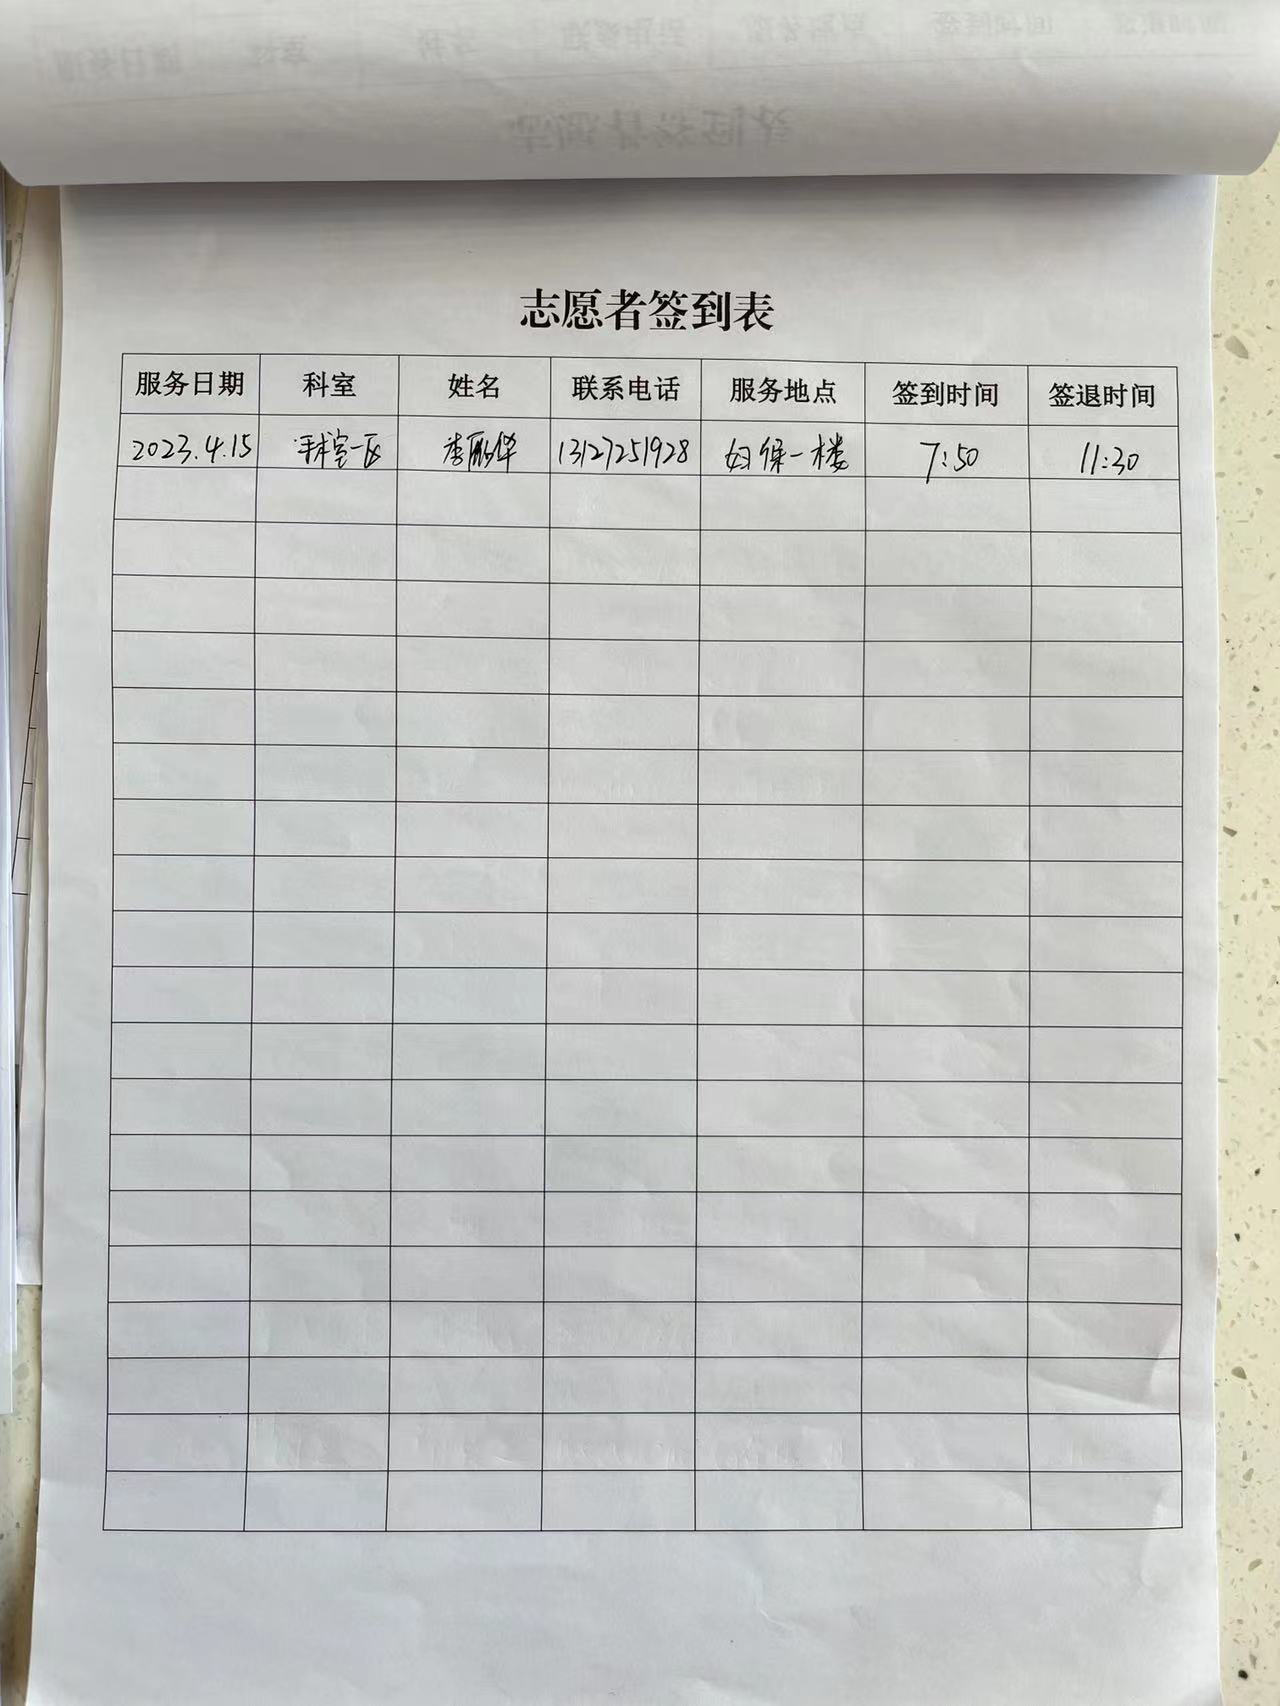 志愿者签到表
服务日期 科室 姓名 联系电话 服务地点 签到时间 签退时间
2023.4.15 手术室一区 李丽华 13127251928 妇保一楼 7:50 11:30